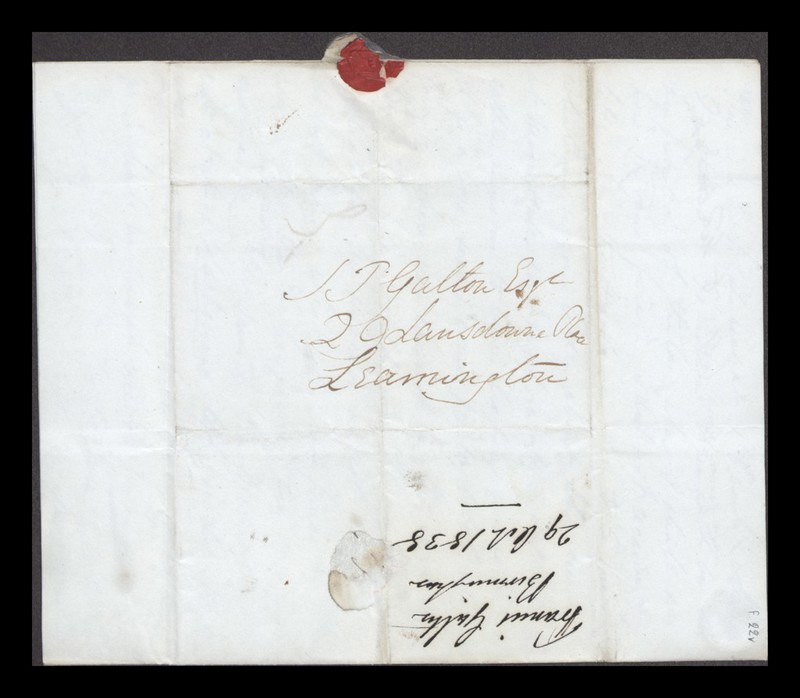 S T Galton Esqr
20 Lansdowne Place
Leamington
Francis Galton
Birmingham
29 Oct. 1838
f 22v